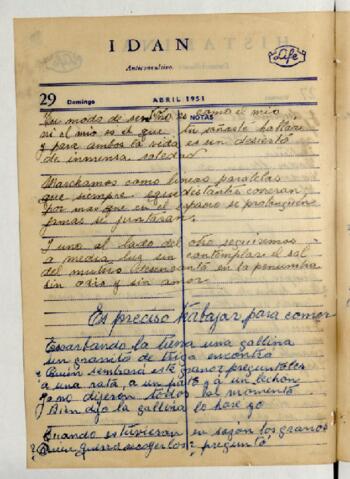 IDAN
Anticonvulsivo.
Life
29 Domingo ABRIL 1951
NOTAS
Tu modo de sentir no es como el mio
ni el mio es el que tu soñaste hallar
y para ambos la vida es un desierto
de inmensa soledad
Marchamos como lineas paralelas
que siempre equidistante correran
por mas que en el espacio se prolonguen
jamas se juntaran.
Y uno al lado del otro seguiremos
a media luz sin contemplar el sol
del mutuo desencanto en la penumbra
sin odio y sin amor
Es preciso trabajar para comer
Escarbando la tierra una gallina
un granito de trigo encontro
¿Quien sembrará este grano? preguntoles
a una rata, a un pato y a un lechon
Yo no dijeron todos al momento
Bien dijo la gallina lo haré yo
Cuando estuvieron en sazon los granos
¿Quien querra recogerlos? preguntó